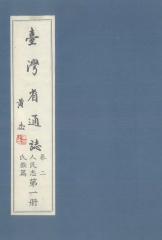 臺灣省通誌
黃杰
卷二
人民志
氏族篇
第一冊